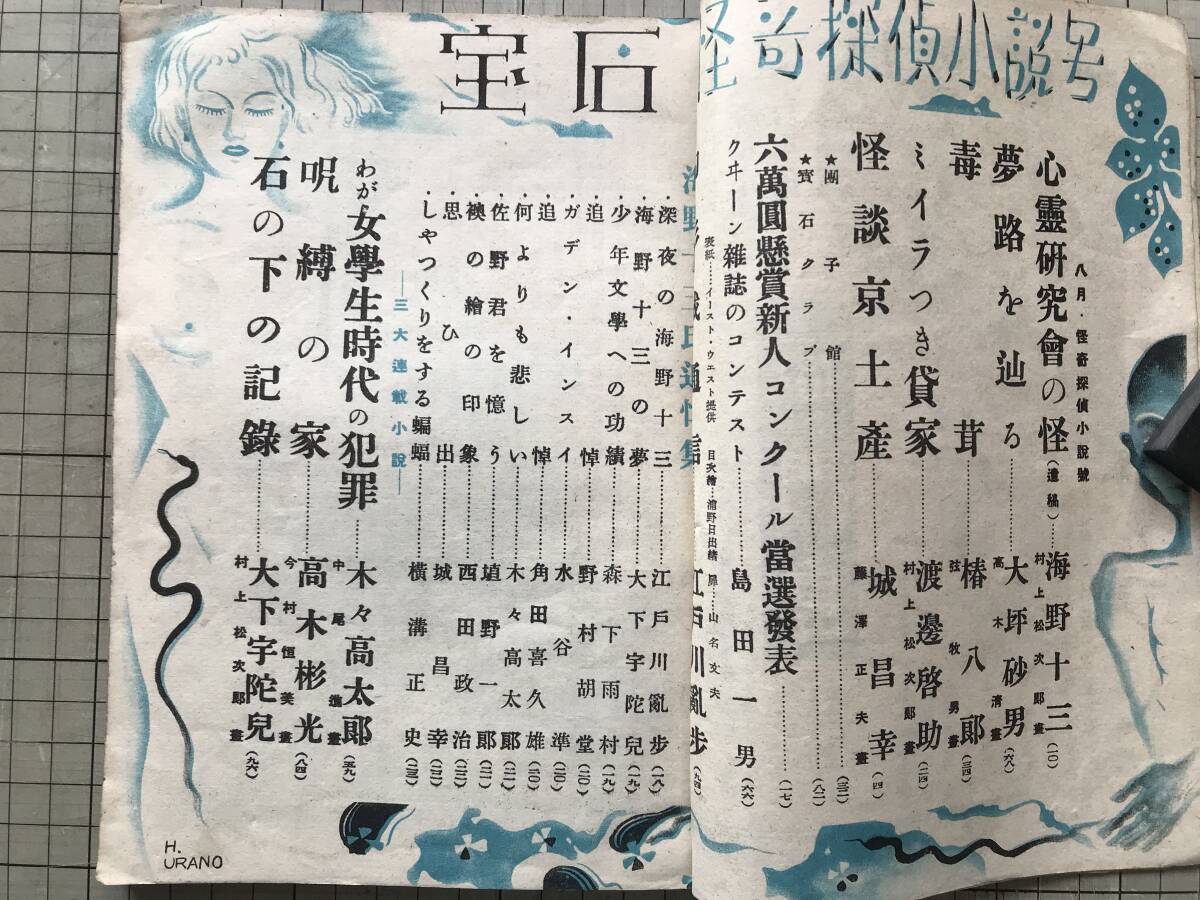 宝石
怪奇探偵小説号
八月・怪奇探偵小説號
心靈研究會の怪(遺稿)……海野十三(一〇)
村上松次郎畫
夢路を辿る……大坪砂男(六八)
高木清畫
毒茸……椿八郎(三四)
弦牧男畫
ミイラつき貸家……渡邊啓助(二四)
村上松次郎畫
怪談京土產……城昌幸(四)
藤澤正夫畫
★團子館……(三三)
★寶石クラブ……(八二)
六萬圓懸賞新人コンクール當選發表……(一七)
クヰーン雜誌のコンテスト……島田一男(六六)
表紙……イースト・ウエスト提供 目次繪…浦野日出緖 扉…山名文夫
江戶川亂步(九四)
・深夜の海野十三……江戶川亂步(一八)
・海野十三の夢……大下宇陀兒(一九)
・少年文學への功績……森下雨村(一九)
・追悼……野村胡堂(二〇)
・ガデン・インスイ……水谷準(二〇)
・追悼……角田喜久雄(二〇)
・何よりも悲しい……木々高太郞(二一)
・佐野君を憶う……埴野一郞(二一)
・襖の繪の印象……西田政治(二二)
・思ひ出……城昌幸(二二)
・しやつくりをする蝙蝠……横溝正史(二三)
―三大連載小說―
わが女學生時代の犯罪……木々高太郞(五九)
中尾進畫
呪縛の家……高木彬光(八四)
今村恒美畫
石の下の記錄……大下宇陀兒(九六)
村上松次郞畫
H.
URANO